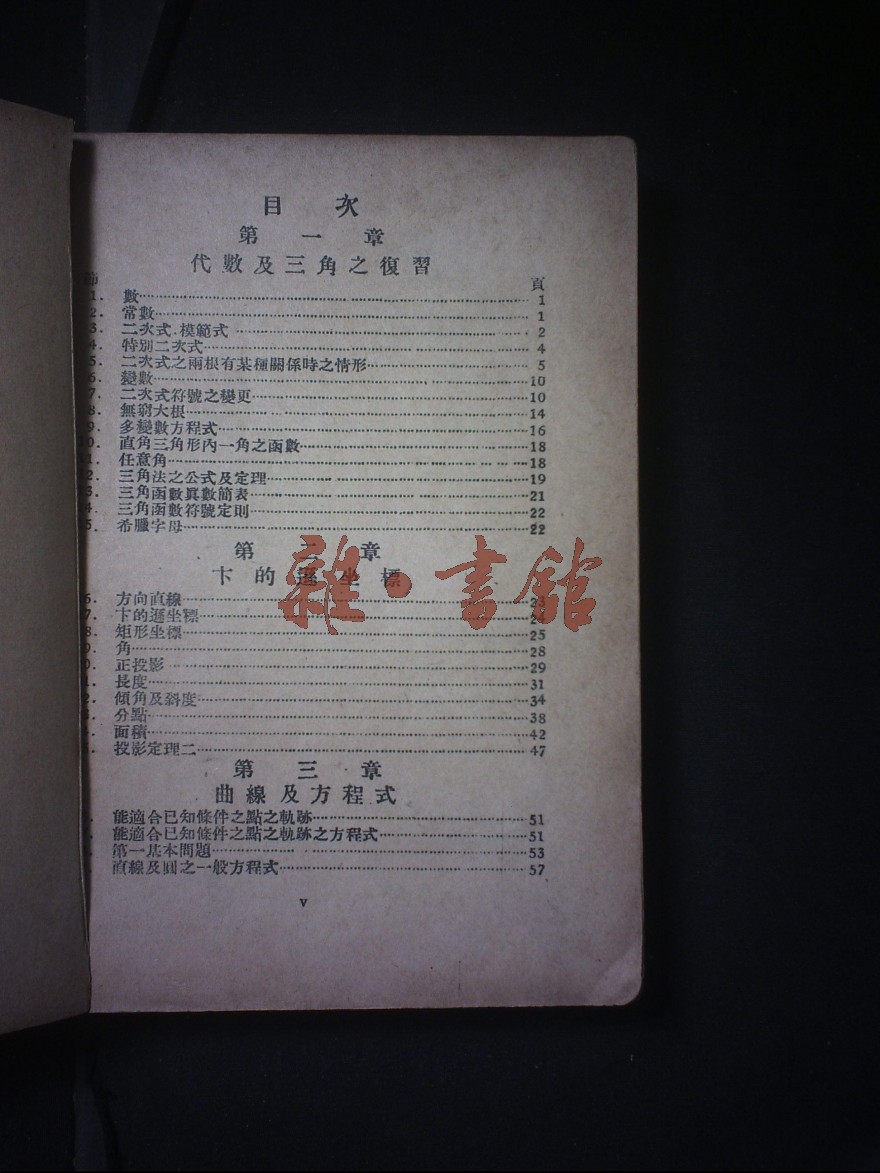 目 次
第 一 章
代數及三角之復習
節 頁
1. 數 1
2. 常數 1
3. 二次式.模範式 2
4. 特別二次式 4
5. 二次式之兩根有某種關係時之情形 5
6. 變數 10
7. 二次式符號之變更 10
8. 無窮大根 14
9. 多變數方程式 16
10. 直角三角形內一角之函數 18
11. 任意角 18
12. 三角法之公式及定理 19
13. 三角函數眞數簡表 21
14. 三角函數符號定則 22
15. 希臘字母 22
第 二 章
卞的遜坐標
6. 方向直線 23
7. 卞的遜坐標 24
8. 矩形坐標 25
9. 角 28
0. 正投影 29
1. 長度 31
2. 傾角及斜度 34
3. 分點 38
. 面積 42
. 投影定理二 47
第 三 章
曲線及方程式
. 能適合已知條件之點之軌跡 51
. 能適合已知條件之點之軌跡之方程式 51
. 第一基本問題 53
. 直線及圓之一般方程式 57
v
雜·書館